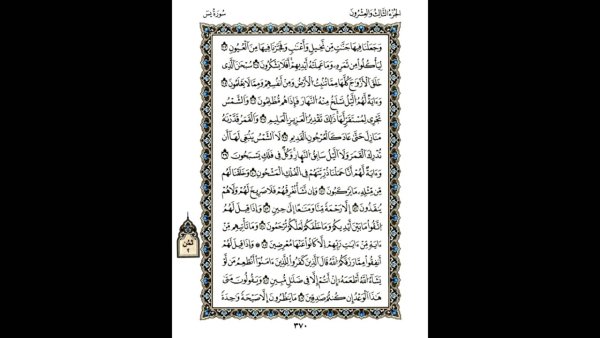 الجزء الثالث والعشرون
سورة يس
وَجَعَلْنَا فِيهَا جَنَّٰتٍ مِّن نَّخِيلٍ وَأَعْنَٰبٍ وَفَجَّرْنَا فِيهَا مِنَ الْعُيُونِ
لِيَأْكُلُوا مِن ثَمَرِهِ وَمَا عَمِلَتْهُ أَيْدِيهِمْ أَفَلَا يَشْكُرُونَ سُبْحَٰنَ الَّذِى
خَلَقَ الْأَزْوَٰجَ كُلَّهَا مِمَّا تُنۢبِتُ الْأَرْضُ وَمِنْ أَنفُسِهِمْ وَمِمَّا لَا يَعْلَمُونَ
وَءَايَةٌ لَّهُمُ الَّيْلُ نَسْلَخُ مِنْهُ النَّهَارَ فَإِذَا هُم مُّظْلِمُونَ وَالشَّمْسُ
تَجْرِى لِمُسْتَقَرٍّ لَّهَا ذَٰلِكَ تَقْدِيرُ الْعَزِيزِ الْعَلِيمِ وَالْقَمَرُ قَدَّرْنَٰهُ
مَنَازِلَ حَتَّىٰ عَادَ كَالْعُرْجُونِ الْقَدِيمِ لَا الشَّمْسُ يَنۢبَغِى لَهَا أَن
تُدْرِكَ الْقَمَرَ وَلَا الَّيْلُ سَابِقُ النَّهَارِ وَكُلٌّ فِى فَلَكٍ يَسْبَحُونَ
وَءَايَةٌ لَّهُمْ أَنَّا حَمَلْنَا ذُرِّيَّتَهُمْ فِى الْفُلْكِ الْمَشْحُونِ وَخَلَقْنَا لَهُم
مِّن مِّثْلِهِ مَا يَرْكَبُونَ وَإِن نَّشَأْ نُغْرِقْهُمْ فَلَا صَرِيخَ لَهُمْ وَلَا هُمْ
يُنقَذُونَ إِلَّا رَحْمَةً مِّنَّا وَمَتَٰعًا إِلَىٰ حِينٍ وَإِذَا قِيلَ لَهُمُ
اتَّقُوا مَا بَيْنَ أَيْدِيكُمْ وَمَا خَلْفَكُمْ لَعَلَّكُمْ تُرْحَمُونَ وَمَا تَأْتِيهِم مِّنْ
ءَايَةٍ مِّنْ ءَايَٰتِ رَبِّهِمْ إِلَّا كَانُوا عَنْهَا مُعْرِضِينَ وَإِذَا قِيلَ لَهُمْ
أَنفِقُوا مِمَّا رَزَقَكُمُ اللَّهُ قَالَ الَّذِينَ كَفَرُوا لِلَّذِينَ ءَامَنُوا أَنُطْعِمُ مَن لَّوْ
يَشَاءُ اللَّهُ أَطْعَمَهُ إِنْ أَنتُمْ إِلَّا فِى ضَلَٰلٍ مُّبِينٍ وَيَقُولُونَ مَتَىٰ
هَٰذَا الْوَعْدُ إِن كُنتُمْ صَٰدِقِينَ مَا يَنظُرُونَ إِلَّا صَيْحَةً وَٰحِدَةً
ثمن
٢
٣٧٠